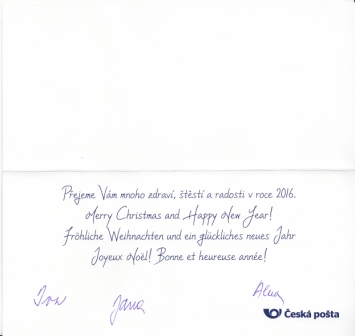 Přejeme Vám mnoho zdraví, štěstí a radosti v roce 2016.
Merry Christmas and Happy New Year!
Fröhliche Weihnachten und ein glückliches neues Jahr
Joyeux Noël! Bonne et heureuse année!
Iva
Jana
Alena
Česká pošta